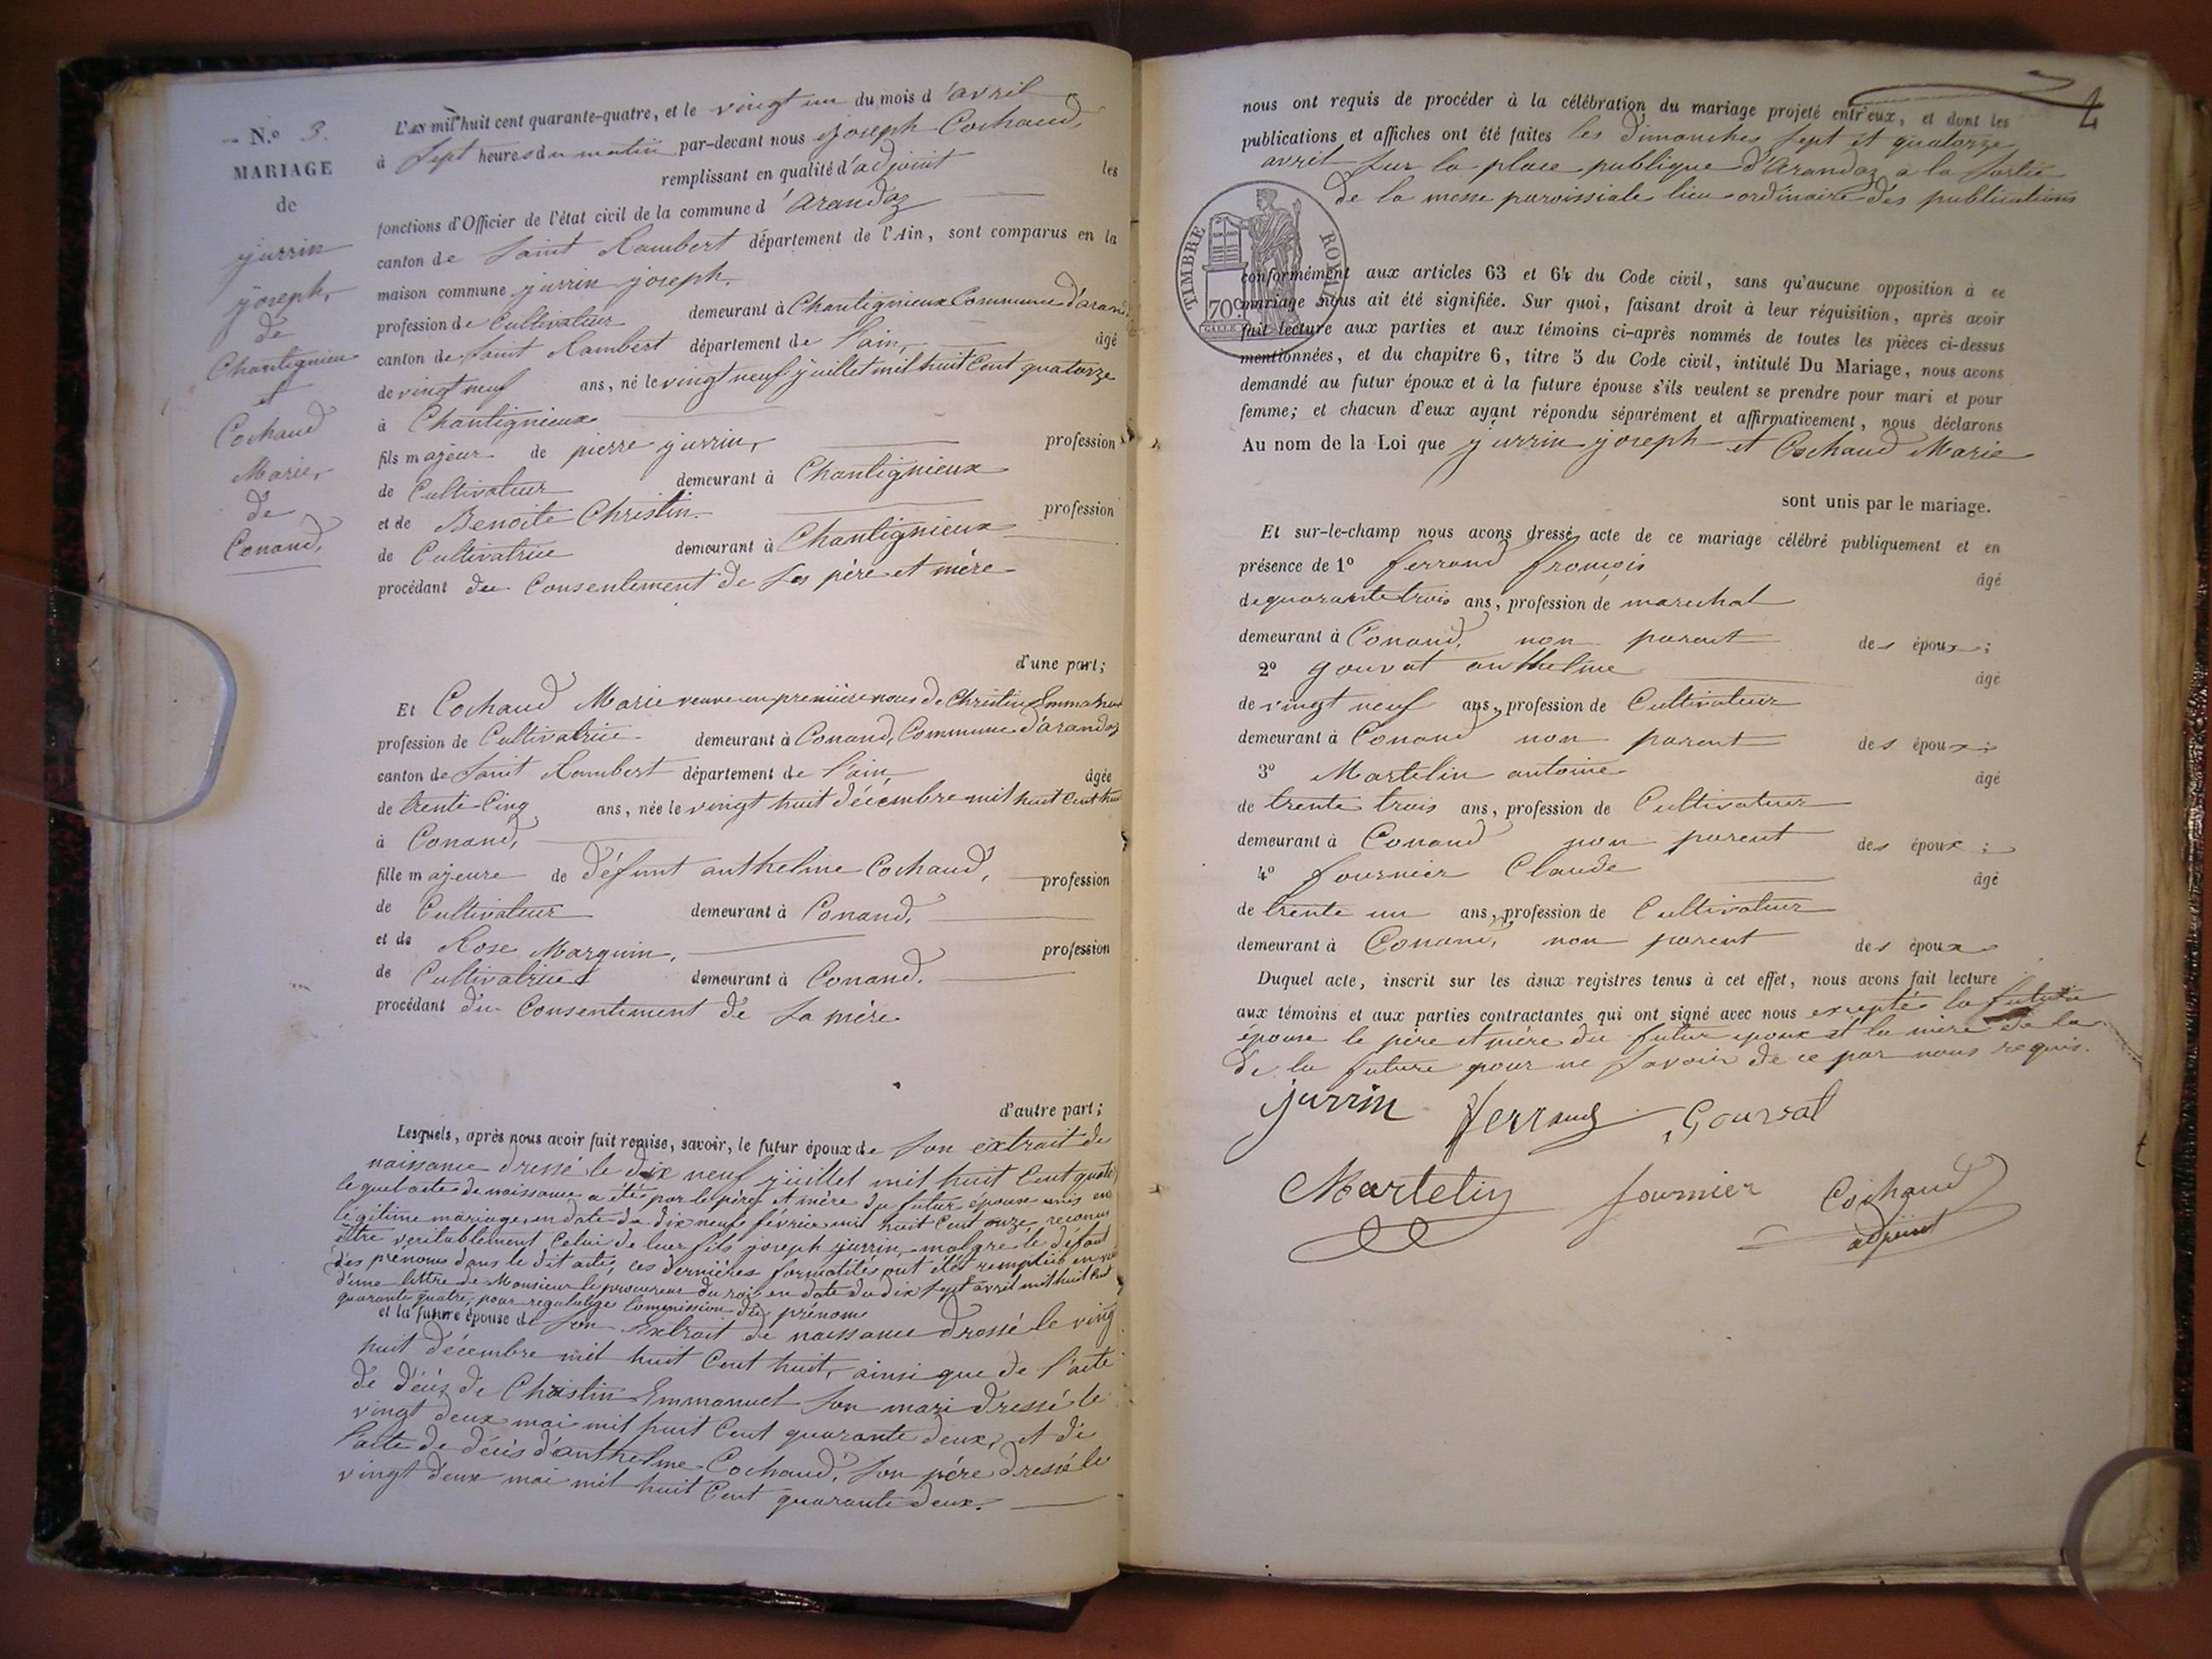 N.o 3.
MARIAGE
de
jurrin
joseph,
de
Chantignieu
et
Cochand
Marie,
de
Conand,
L'an mil huit cent quarante-quatre, et le vingt un du mois d'avril
à sept heures du matin par-devant nous joseph Cochand,
remplissant en qualité d'adjoint les
fonctions d'Officier de l'état civil de la commune d'arandaz
canton de Saint Rambert département de l'Ain, sont comparus en la
maison commune jurrin joseph,
profession de Cultivateur demeurant à Chantignieux Commune d'arand
canton de Saint Rambert département de l'ain, âgé
de vingt neuf ans, né le vingt neuf juillet mil huit Cent quatorze
à Chantignieux
fils majeur de pierre jurrin, profession
de Cultivateur demeurant à Chantignieux
et de Benoite Christin profession
de Cultivatrice demeurant à Chantignieux
procédant du Consentement de ses père et mère
d'une part;
Et Cochand Marie veuve en première nous de Christin Emmanuel
profession de Cultivatrice demeurant à Conand, Commune d'arandaz
canton de Saint Rambert département de l'ain, âgée
de trente Cinq ans, née le vingt huit décembre mil huit Cent huit
à Conand,
fille majeure de défunt anthelme Cochand, profession
de Cultivateur demeurant à Conand,
et de Rose Marguin, profession
de Cultivatrice demeurant à Conand,
procédant du Consentement de sa mère
d'autre part;
Lesquels, après nous avoir fait remise, savoir, le futur époux de son extrait de
naissance dressé le dix neuf juillet mil huit Cent quato
lequel acte de naissance a été par le père et mère du futur époux unis en
légitime mariage en date du dix neuf février mil huit Cent onze reconnu
être veritablement Celui de leur fils joseph jurrin, malgré le défaut
des prénoms dans le dit acte, ces dernières formalités ont étés remplies en
d'une lettre de Monsieur le procureur du roi en date du dix sept avril mil huit Cent
quarante quatre, pour l'ommission du prénom
et la future épouse de son Extrait de naissance dressé le ving
huit décembre mil huit Cent huit, ainsi que de l'acte
de décès de Christin Emmanuel son mari dressé le
vingt deux mai mil huit Cent quarante deux, et de
l'acte de décès d'anthelme Cochand, son père dressé le
vingt deux mai mil huit Cent quarante deux.
nous ont requis de procéder à la célébration du mariage projeté entr'eux, et dont les
publications et affiches ont été faites les dimanches sept et quatorze
avril sur la place publique d'Arandaz a la sortie
de la messe paroissiale lieu ordinaire des publications
TIMBRE ROYAL
70c
conformément aux articles 63 et 64 du Code civil, sans qu'aucune opposition à ce
mariage nous ait été signifiée. Sur quoi, faisant droit à leur réquisition, après avoir
fait lecture aux parties et aux témoins ci-après nommés de toutes les pièces ci-dessus
mentionnées, et du chapitre 6, titre 5 du Code civil, intitulé Du Mariage, nous avons
demandé au futur époux et à la future épouse s'ils veulent se prendre pour mari et pour
femme; et chacun d'eux ayant répondu séparément et affirmativement, nous déclarons
Au nom de la Loi que jurrin joseph et Cochand Marie
sont unis par le mariage.
Et sur-le-champ nous avons dressé acte de ce mariage célébré publiquement et en
présence de 1o ferrand françois âgé
de quarante trois ans, profession de marechal
demeurant à Conand, non parent des époux;
2o gourat anthelme âgé
de vingt neuf ans, profession de Cultivateur
demeurant à Conand non parent des époux;
3o Martelin antoine âgé
de trente trois ans, profession de Cultivateur
demeurant à Conand non parent des époux;
4o fournier Claude âgé
de trente un ans, profession de Cultivateur
demeurant à Conand, non parent des époux
Duquel acte, inscrit sur les deux registres tenus à cet effet, nous avons fait lecture
aux témoins et aux parties contractantes qui ont signé avec nous exceptés la future
épouse le père et mère du futur epoux et la mère de la
de la future pour ne savoir de ce par nous requis.
jurrin ferrand Gourat
Martelin fournier Cochand
adjoint